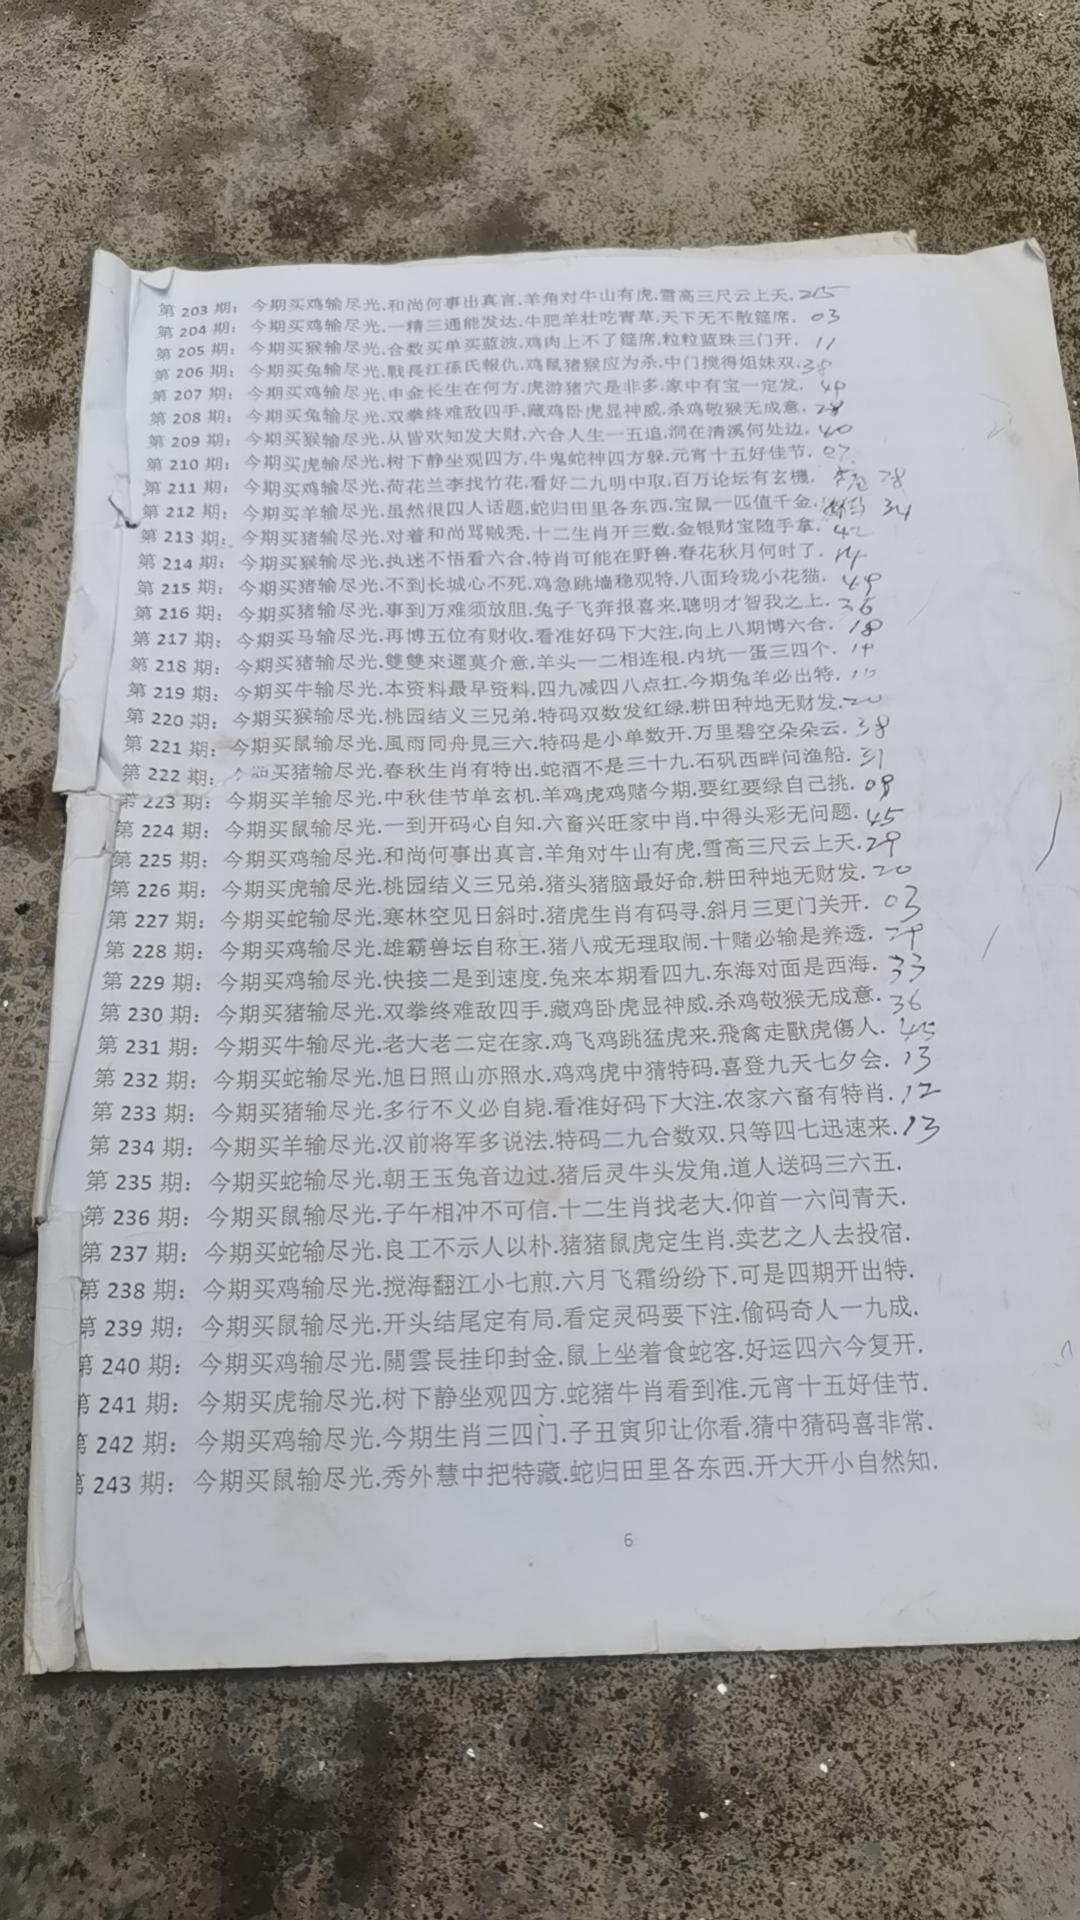 第 203 期: 今期买鸡输尽光.和尚何事出真言.羊角对牛山有虎.雪高三尺云上天.
第 204 期: 今期买鸡输尽光.一精三通能发达.牛肥羊壮吃青草.天下无不散筵席. 03
第 205 期: 今期买猴输尽光.合数买单买蓝波.鸡肉上不了筵席.粒粒蓝珠三门开. 11
第 206 期: 今期买兔输尽光.戰長江孫氏報仇.鸡鼠猪猴应为杀.中门搅得姐妹双. 38
第 207 期: 今期买鸡输尽光.申金长生在何方.虎游猪穴是非多.家中有宝一定发. 49
第 208 期: 今期买兔输尽光.双拳终难敌四手.藏鸡卧虎显神威.杀鸡敬猴无成意.
第 209 期: 今期买猴输尽光.从皆欢知发大财.六合人生一五追.洞在清溪何处边. 40
第 210 期: 今期买虎输尽光.树下静坐观四方.牛鬼蛇神四方躲.元宵十五好佳节. 07
第 211 期: 今期买鸡输尽光.荷花兰李找竹花.看好二九明中取.百万论坛有玄機. 28
第 212 期: 今期买羊输尽光.虽然很四人话题.蛇归田里各东西.宝鼠一匹值千金. 34
第 213 期: 今期买猪输尽光.对着和尚骂贼秃.十二生肖开三数.金银财宝随手拿. 42
第 214 期: 今期买猴输尽光.执迷不悟看六合.特肖可能在野兽.春花秋月何时了.
第 215 期: 今期买猪输尽光.不到长城心不死.鸡急跳墙稳观特.八面玲珑小花猫. 49
第 216 期: 今期买猪输尽光.事到万难须放胆.兔子飞奔报喜来.聰明才智我之上. 36
第 217 期: 今期买马输尽光.再博五位有财收.看准好码下大注.向上八期博六合. 18
第 218 期: 今期买猪输尽光.雙雙來遲莫介意.羊头一二相连根.内坑一蛋三四个. 14
第 219 期: 今期买牛输尽光.本资料最早资料.四九减四八点扛.今期兔羊必出特.
第 220 期: 今期买猴输尽光.桃园结义三兄弟.特码双数发红绿.耕田种地无财发. 20
第 221 期: 今期买鼠输尽光.風雨同舟見三六.特码是小单数开.万里碧空朵朵云. 38
第 222 期: 今期买猪输尽光.春秋生肖有特出.蛇酒不是三十九.石矾西畔问渔船. 31
第 223 期: 今期买羊输尽光.中秋佳节单玄机.羊鸡虎鸡赌今期.要红要绿自己挑. 09
第 224 期: 今期买鼠输尽光.一到开码心自知.六畜兴旺家中肖.中得头彩无问题. 45
第 225 期: 今期买鸡输尽光.和尚何事出真言.羊角对牛山有虎.雪高三尺云上天. 29
第 226 期: 今期买虎输尽光.桃园结义三兄弟.猪头猪脑最好命.耕田种地无财发. 20
第 227 期: 今期买蛇输尽光.寒林空见日斜时.猪虎生肖有码寻.斜月三更门关开. 03
第 228 期: 今期买鸡输尽光.雄霸兽坛自称王.猪八戒无理取闹.十赌必输是养透. 29
第 229 期: 今期买鸡输尽光.快接二是到速度.兔来本期看四九.东海对面是西海. 33
第 230 期: 今期买猪输尽光.双拳终难敌四手.藏鸡卧虎显神威.杀鸡敬猴无成意. 36
第 231 期: 今期买牛输尽光.老大老二定在家.鸡飞鸡跳猛虎来.飛禽走獸虎傷人. 45
第 232 期: 今期买蛇输尽光.旭日照山亦照水.鸡鸡虎中猜特码.喜登九天七夕会. 13
第 233 期: 今期买猪输尽光.多行不义必自毙.看准好码下大注.农家六畜有特肖. 12
第 234 期: 今期买羊输尽光.汉前将军多说法.特码二九合数双.只等四七迅速来. 13
第 235 期: 今期买蛇输尽光.朝王玉兔音边过.猪后灵牛头发角.道人送码三六五.
第 236 期: 今期买鼠输尽光.子午相冲不可信.十二生肖找老大.仰首一六问青天.
第 237 期: 今期买蛇输尽光.良工不示人以朴.猪猪鼠虎定生肖.卖艺之人去投宿.
第 238 期: 今期买鸡输尽光.搅海翻江小七煎.六月飞霜纷纷下.可是四期开出特.
第 239 期: 今期买鼠输尽光.开头结尾定有局.看定灵码要下注.偷码奇人一九成.
第 240 期: 今期买鸡输尽光.關雲長挂印封金.鼠上坐着食蛇客.好运四六今复开.
第 241 期: 今期买虎输尽光.树下静坐观四方.蛇猪牛肖看到准.元宵十五好佳节.
第 242 期: 今期买鸡输尽光.今期生肖三四门.子丑寅卯让你看.猜中猜码喜非常.
第 243 期: 今期买鼠输尽光.秀外慧中把特藏.蛇归田里各东西.开大开小自然知.
6